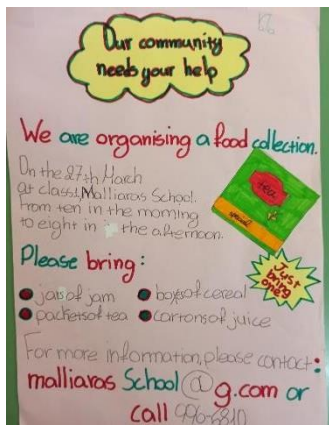 Our community
needs your help
We are organising a food collection.
On the 27th March
at class1, Malliaras School.
from ten in the morning
to eight in the afternoon.
tea
special
Please bring:
jars of jam
boxes of cereal
packets of tea
cartons of juice
Just
bring
one!
For more information, please contact:
malliaras School@g.com or
call 996-6810